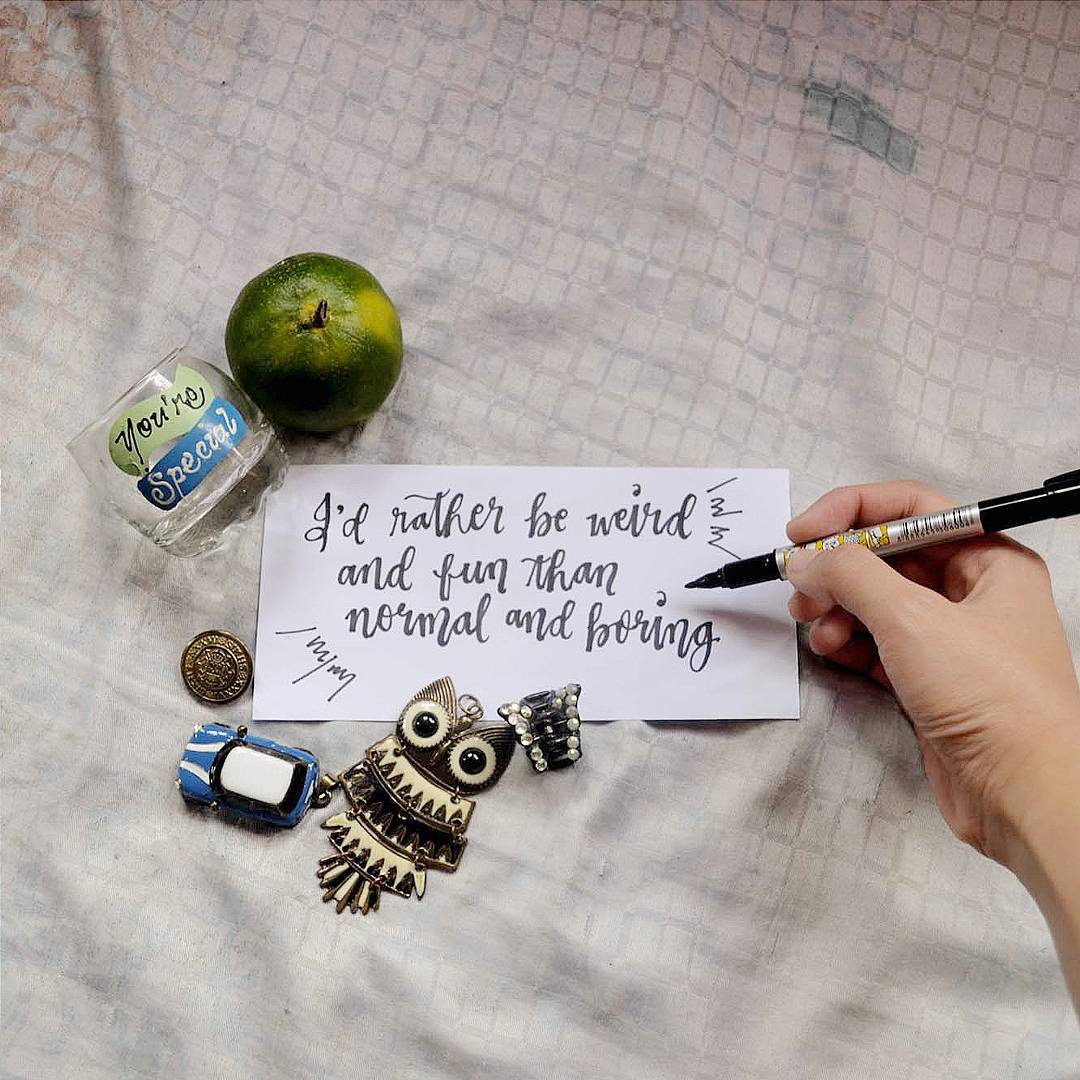 You're
Special
I'd rather be weird
and fun than
normal and boring